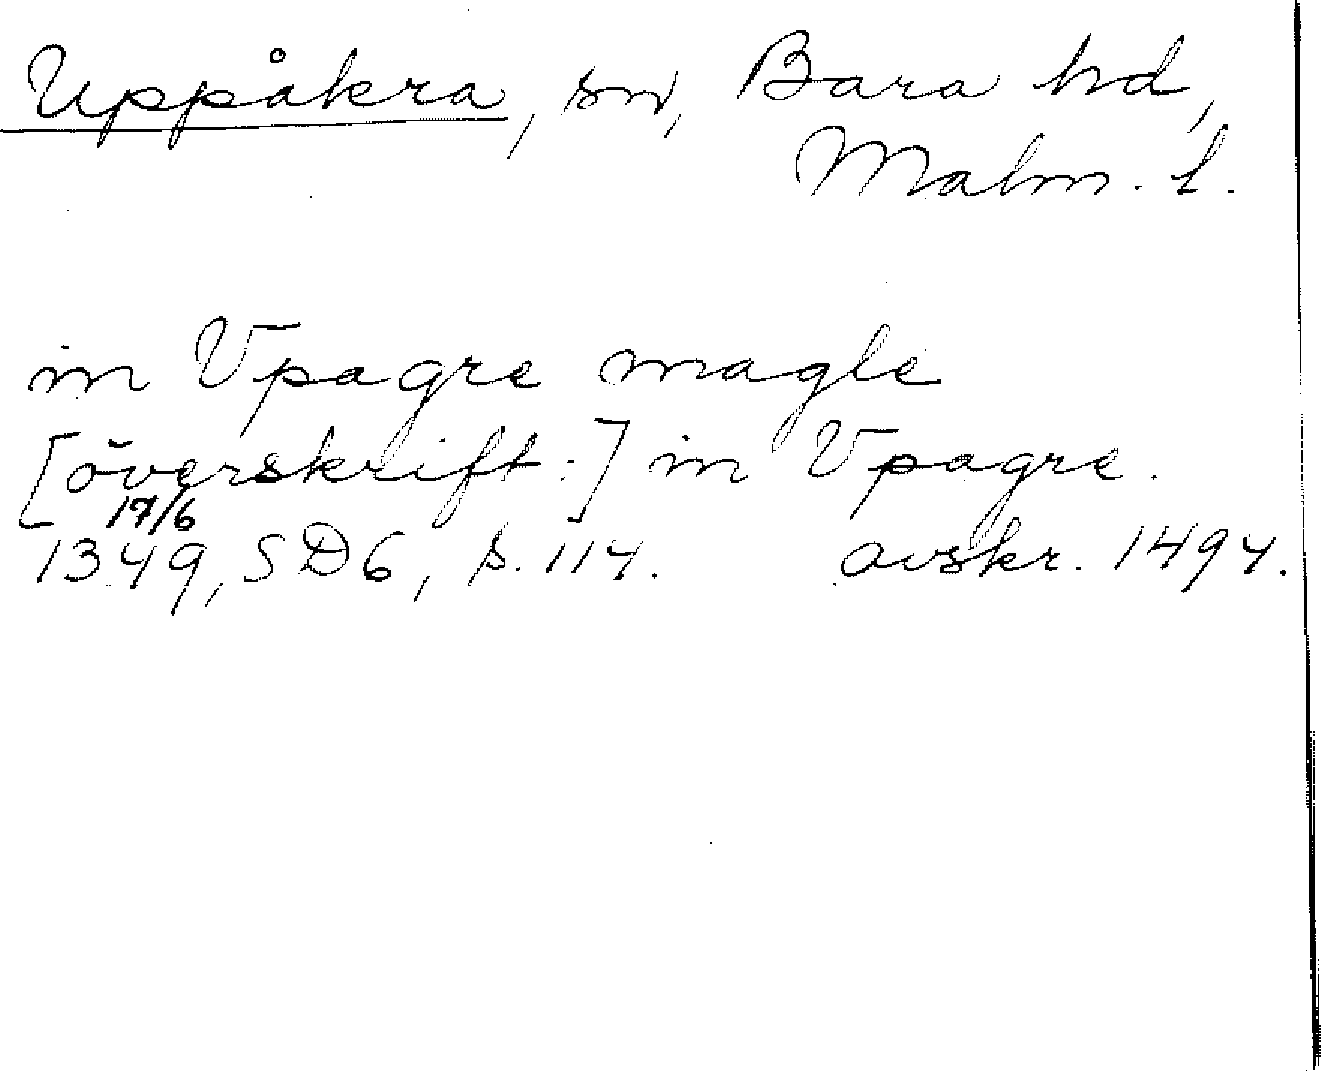 Uppåkra, sn, Bara hd,
Malm. l.
in Vpagre magle
[överskrift:] in Vpagre.
17/6
1349, SD6, s. 114. avskr. 1494.